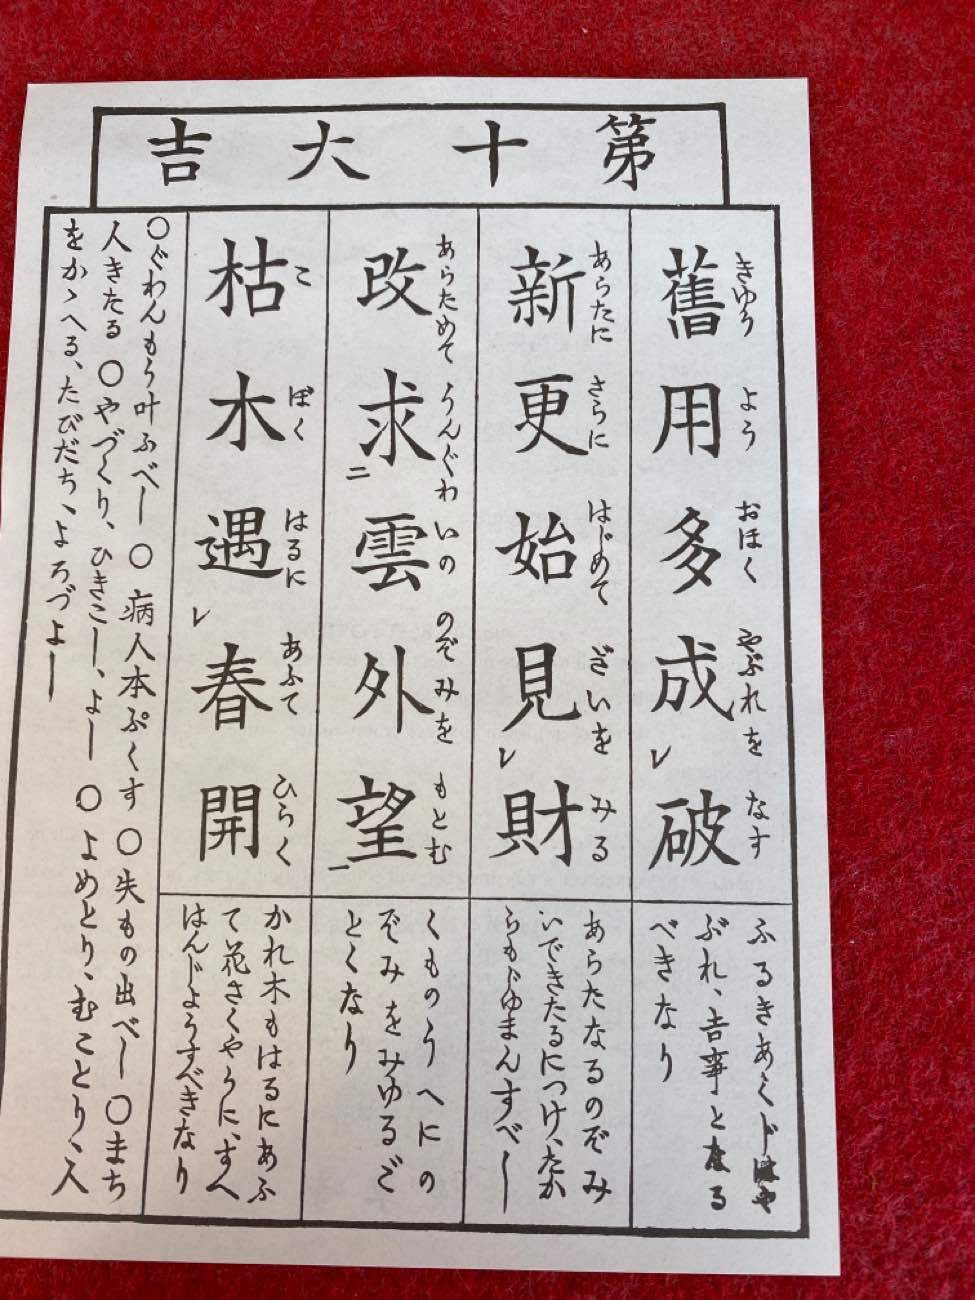 第十大吉
きゆう よう おほく やぶれを なす
舊用多成レ破
ふるきあくじはや
ぶれ、吉事となる
べきなり
あらたに さらに はじめて ざいを みる
新更始見レ財
あらたなるのぞみ
いできたるにつけ、たか
らもじゆまんすべし
あらためて うんぐわいの のぞみを もとむ
改求二雲外望一
くものうへにの
ぞみをみゆるご
とくなり
こ ぼく はるに あふて ひらく
枯木遇レ春開
かれ木もはるにあふ
て花さくやうに、すへ
はんじようすべきなり
〇ぐわんもう叶ふべし 〇病人本ぷくす 〇失もの出べし 〇まち
人きたる 〇やづくり、ひきこし、よし 〇よめとり、むことり、人
をかゝへる、たびだち、よろづよし